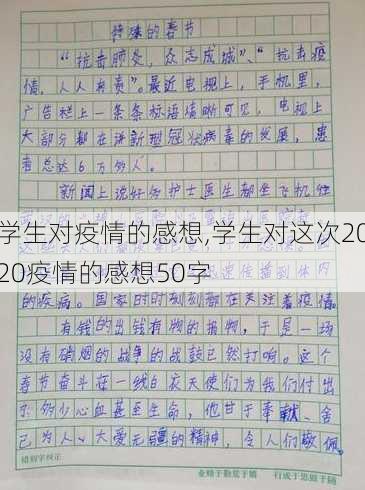 特殊的春节
“抗击肺炎，众志成城”、“抗击疫
情，人人有责”。最近电视上，手机里，
广告栏上一条条标语清晰可见，电视上
大部分都在讲新型冠状病毒的发展，患
者总达6万多人。
新闻上说好多护士医生都坐飞机
学生对疫情的感想,学生对这次20
20疫情的感想50字
的疾病。国家时时刻刻都在关注着疫情。
有钱的出钱有物的捐物，于是一场
没有硝烟的战争的战鼓已然打响。这个
春节奋斗在一线白衣天使们为我们付出
多少心血甚至生命，他甘于奉献、舍
己为人、大爱无疆的精神，令人们敬佩。
错别字纠正
业精于勤荒于嬉 行成于思毁于随